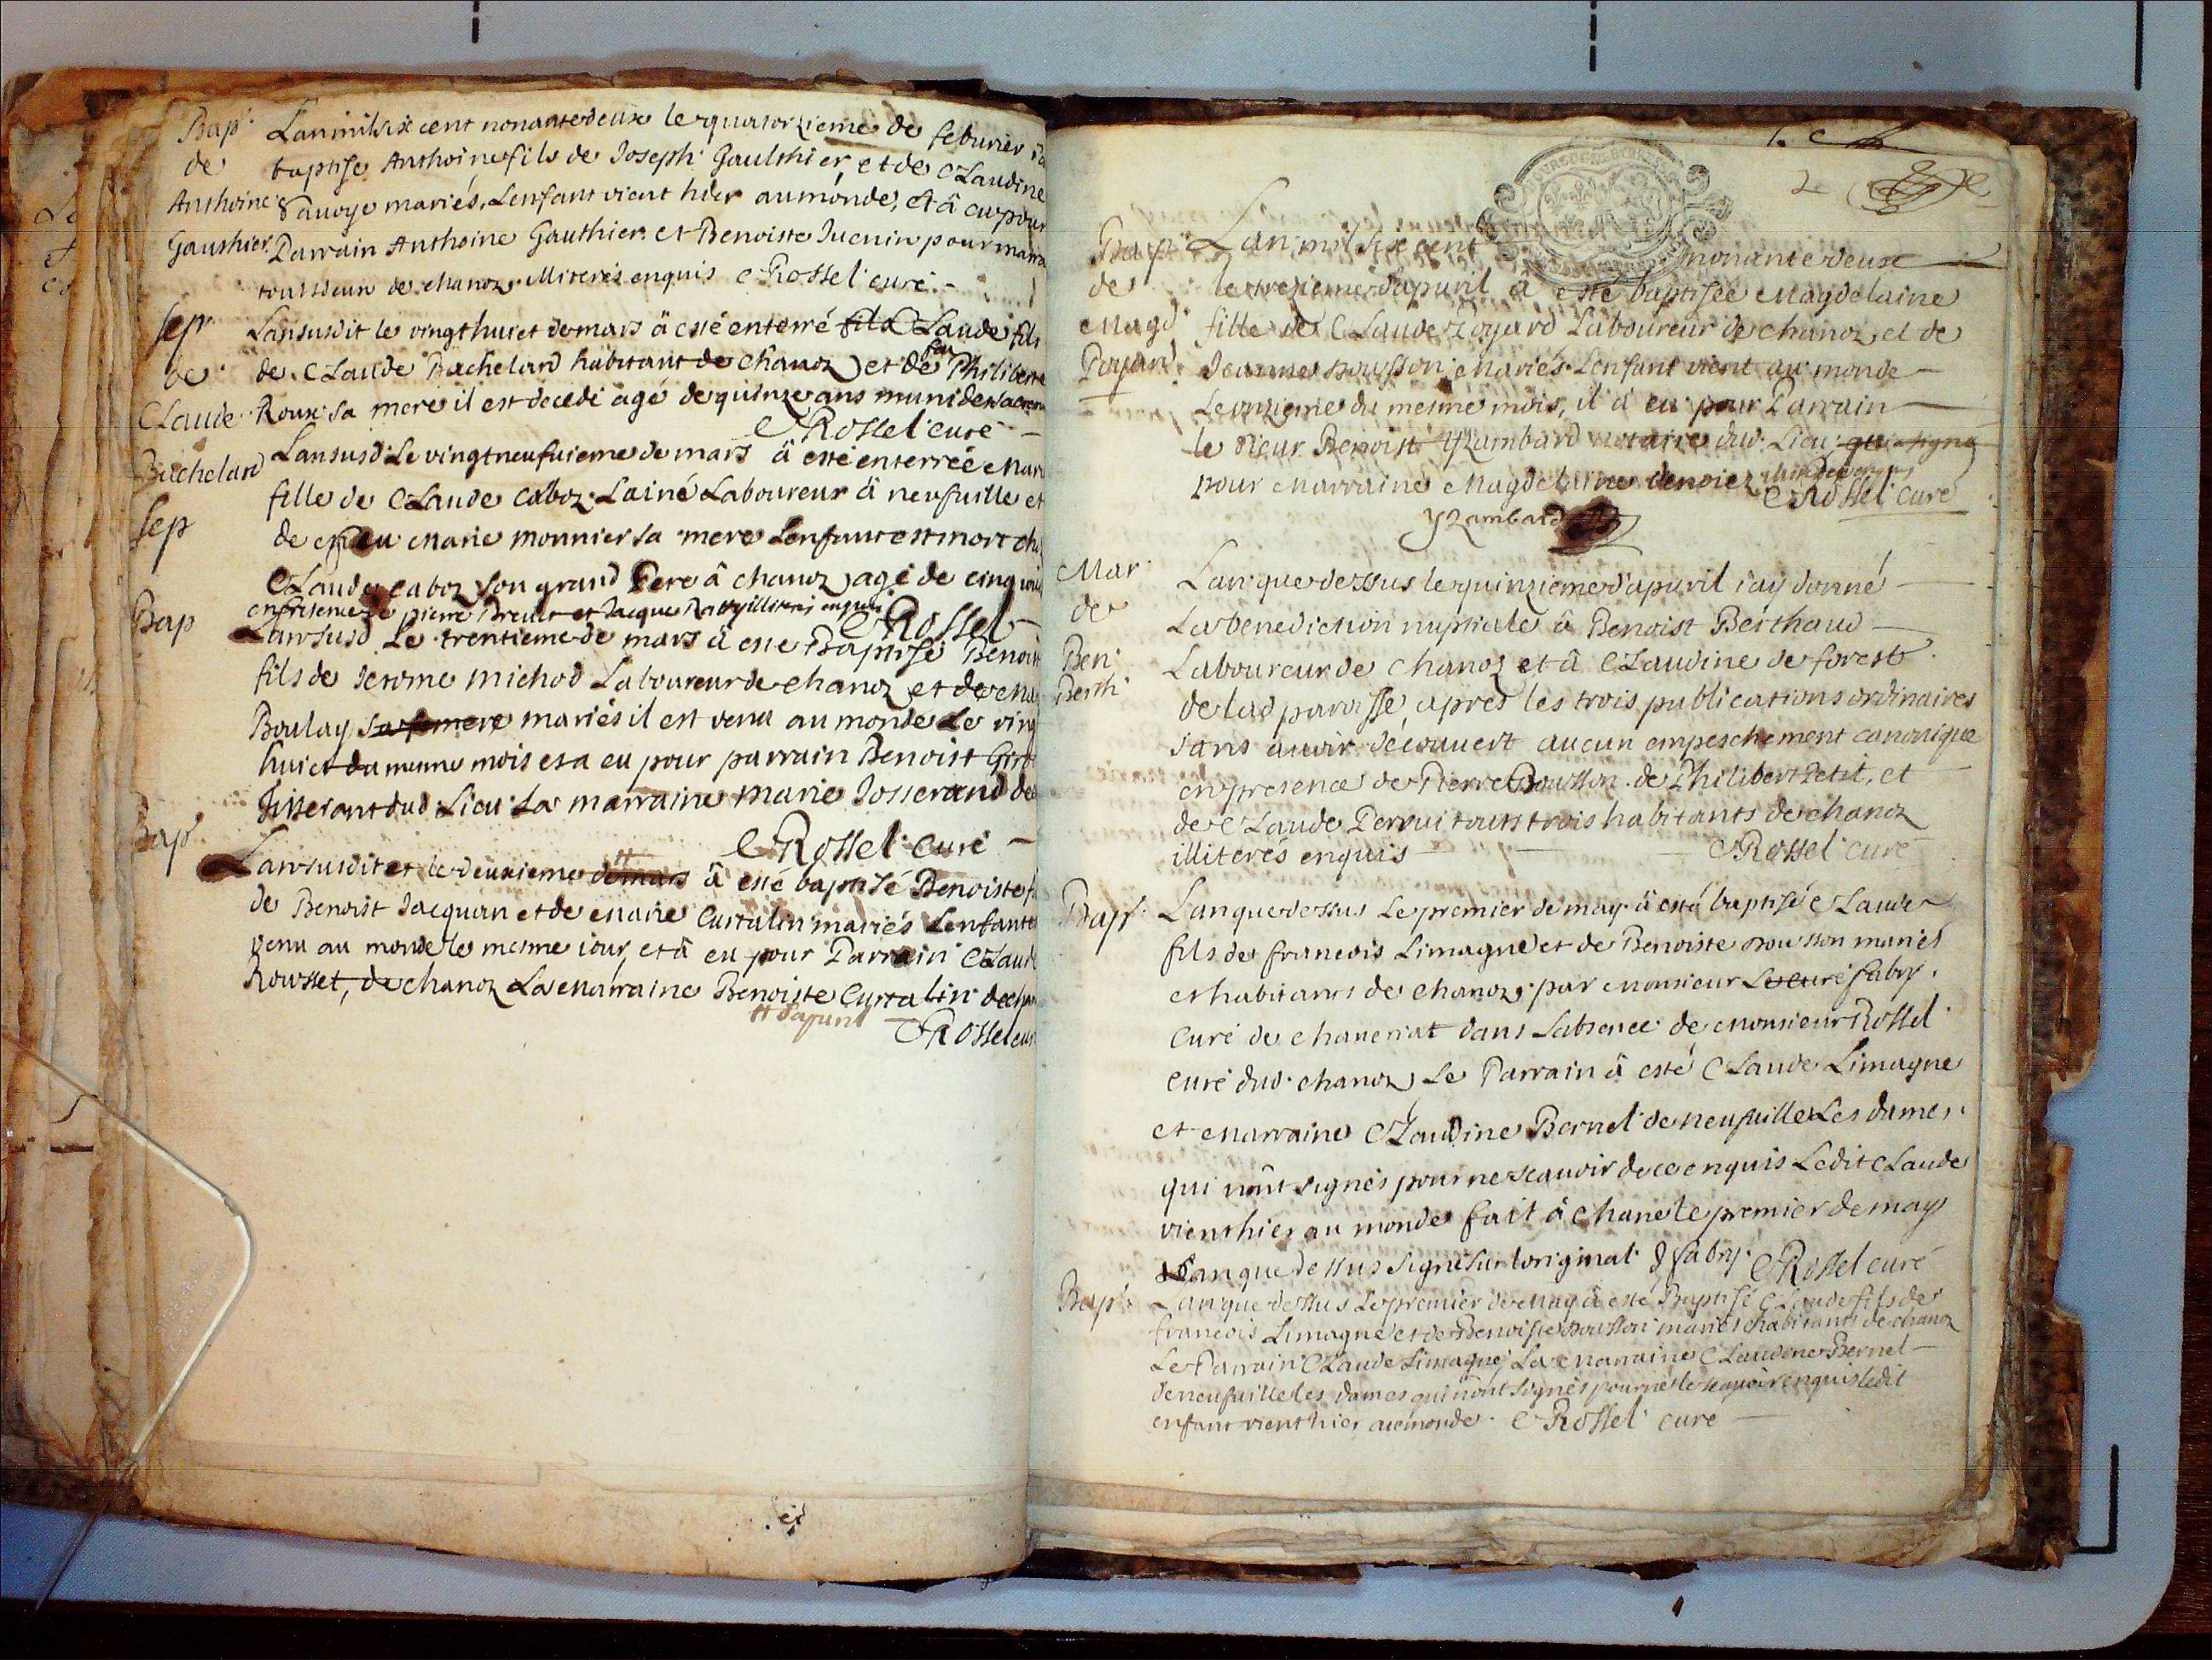 Bap. Lanmilsix cent nonantedeux le quatorzieme de feburier
de baptisé Anthoine fils de Joseph Gaulthier, et de Claudine
Anthoine Sauoye mariés. Lenfant vient hier au monde, et â eu pour
Gauthier. Parrain Anthoine Gauthier et Benoiste Juenin pour marra
tous deux de chanoz illiterés enquis C Rossel curé
Sep Lansusdit le vingthuict de mars â esté enterré fils Claude fils
de de Claude Bachelard habitant de Chanoz et de feu Philiberte
Claude Roux sa mere il est decedé agé de quinze ans muni des sacrem
C Rossel curé
Bachelard Lansusd. Le vingtneufuieme de mars â esté enterrée Mari
fille de Claude Caboz Lainé Laboureur â neufuille et
Sep de Marie monnier sa mere Lenfant est mort ché
Claude Caboz son grand Pere â chanoz agé de cinq
en presence de pierre Breuet et Jacque illiterés enquis C Rossel
Bap Lansusd. Le trentieme de mars â esté Baptisé Benoist
fils de Jerome michod Laboureur de chanoz et de Ma
Boulay sa mere mariés il est venu au monde Le ving
huict du mesme mois et a eu pour parrain Benoist
Tisserant dud. Lieu La marraine marie Josserand de
C Rossel Curé
Bap. Lansusdit et le deuxieme demars â esté baptisé Benoiste f
de Benoist Jacquan et de Marie Curtalin mariés Lenfant
venu au monde le mesme jour, et â eu pour Parrain Claude
Rousset, de chanoz La Marraine Benoiste Curtalin de chan
# dapuril C Rossel cur
2e
Bap. Lan mil six cent nonante deux
de le trezieme dapuril â esté baptisée Magdelaine
Magd. fille de Claude Poyard Laboureur de chanoz et de
Poyard. Jeanne Pousson Mariés. Lenfant vient au monde
Le onzieme du mesme mois, il â eu pour Parrain
le sieur Benoist Yzambard notaire dud. Lieu qui a signé
pour Marraine Magdelaine
C Rossel curé
Yzambard
Mar. Lan que dessus le quinzieme dapuril iay donné
de La benediction nuptiale â Benoist Berthaud
Ben. Laboureur de Chanoz et â Claudine de forest
Berth. de lad paroisse, apres les trois publications ordinaires
sans auoir decouuert aucun empeschement canonique
en presence de Pierre Pousson. de Philibert Petit, et
de Claude Perrui touts trois habitants de chanoz
illiterés enquis C Rossel curé
Bap. Lanque dessus Le premier de may â esté baptisé Claude
fils de francois Limagne et de Benoiste Pousson mariés
et habitants de Chanoz par Monsieur Le curé fabry.
Curé de chaueriat dans Labsence de Monsieur Rossel
curé dud. chanoz Le Parrain â esté Claude Limagne
et Marraine Claudine Bernel de neufuille Les dames.
qui nont signés pour ne scauoir de ce enquis Ledit Claude
vient hier au monde fait â Chane le premier de may
Lan que dessus signé sur loriginal J fabry C Rossel curé
Bap. Lanque dessus Le premier de May â esté Baptisé Claude fils de
francois Limagne et de Benoiste Pousson mariés habitants de chanoz
Le Parrain Claude Limagne, La Marraine Claudine Bernel
de neufuille les dames qui nont signés pour ne le scauoir enquis Ledit
enfant vient hier au monde. C Rossel curé